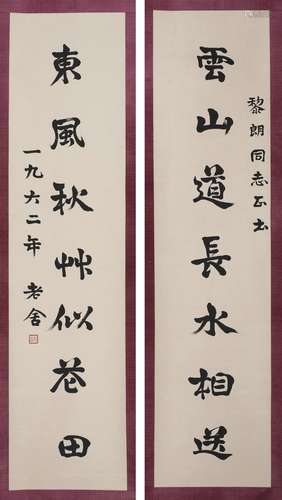 黎朗同志正书
雲山道長水相送
東風秋艸似花田
一九六二年 老舍